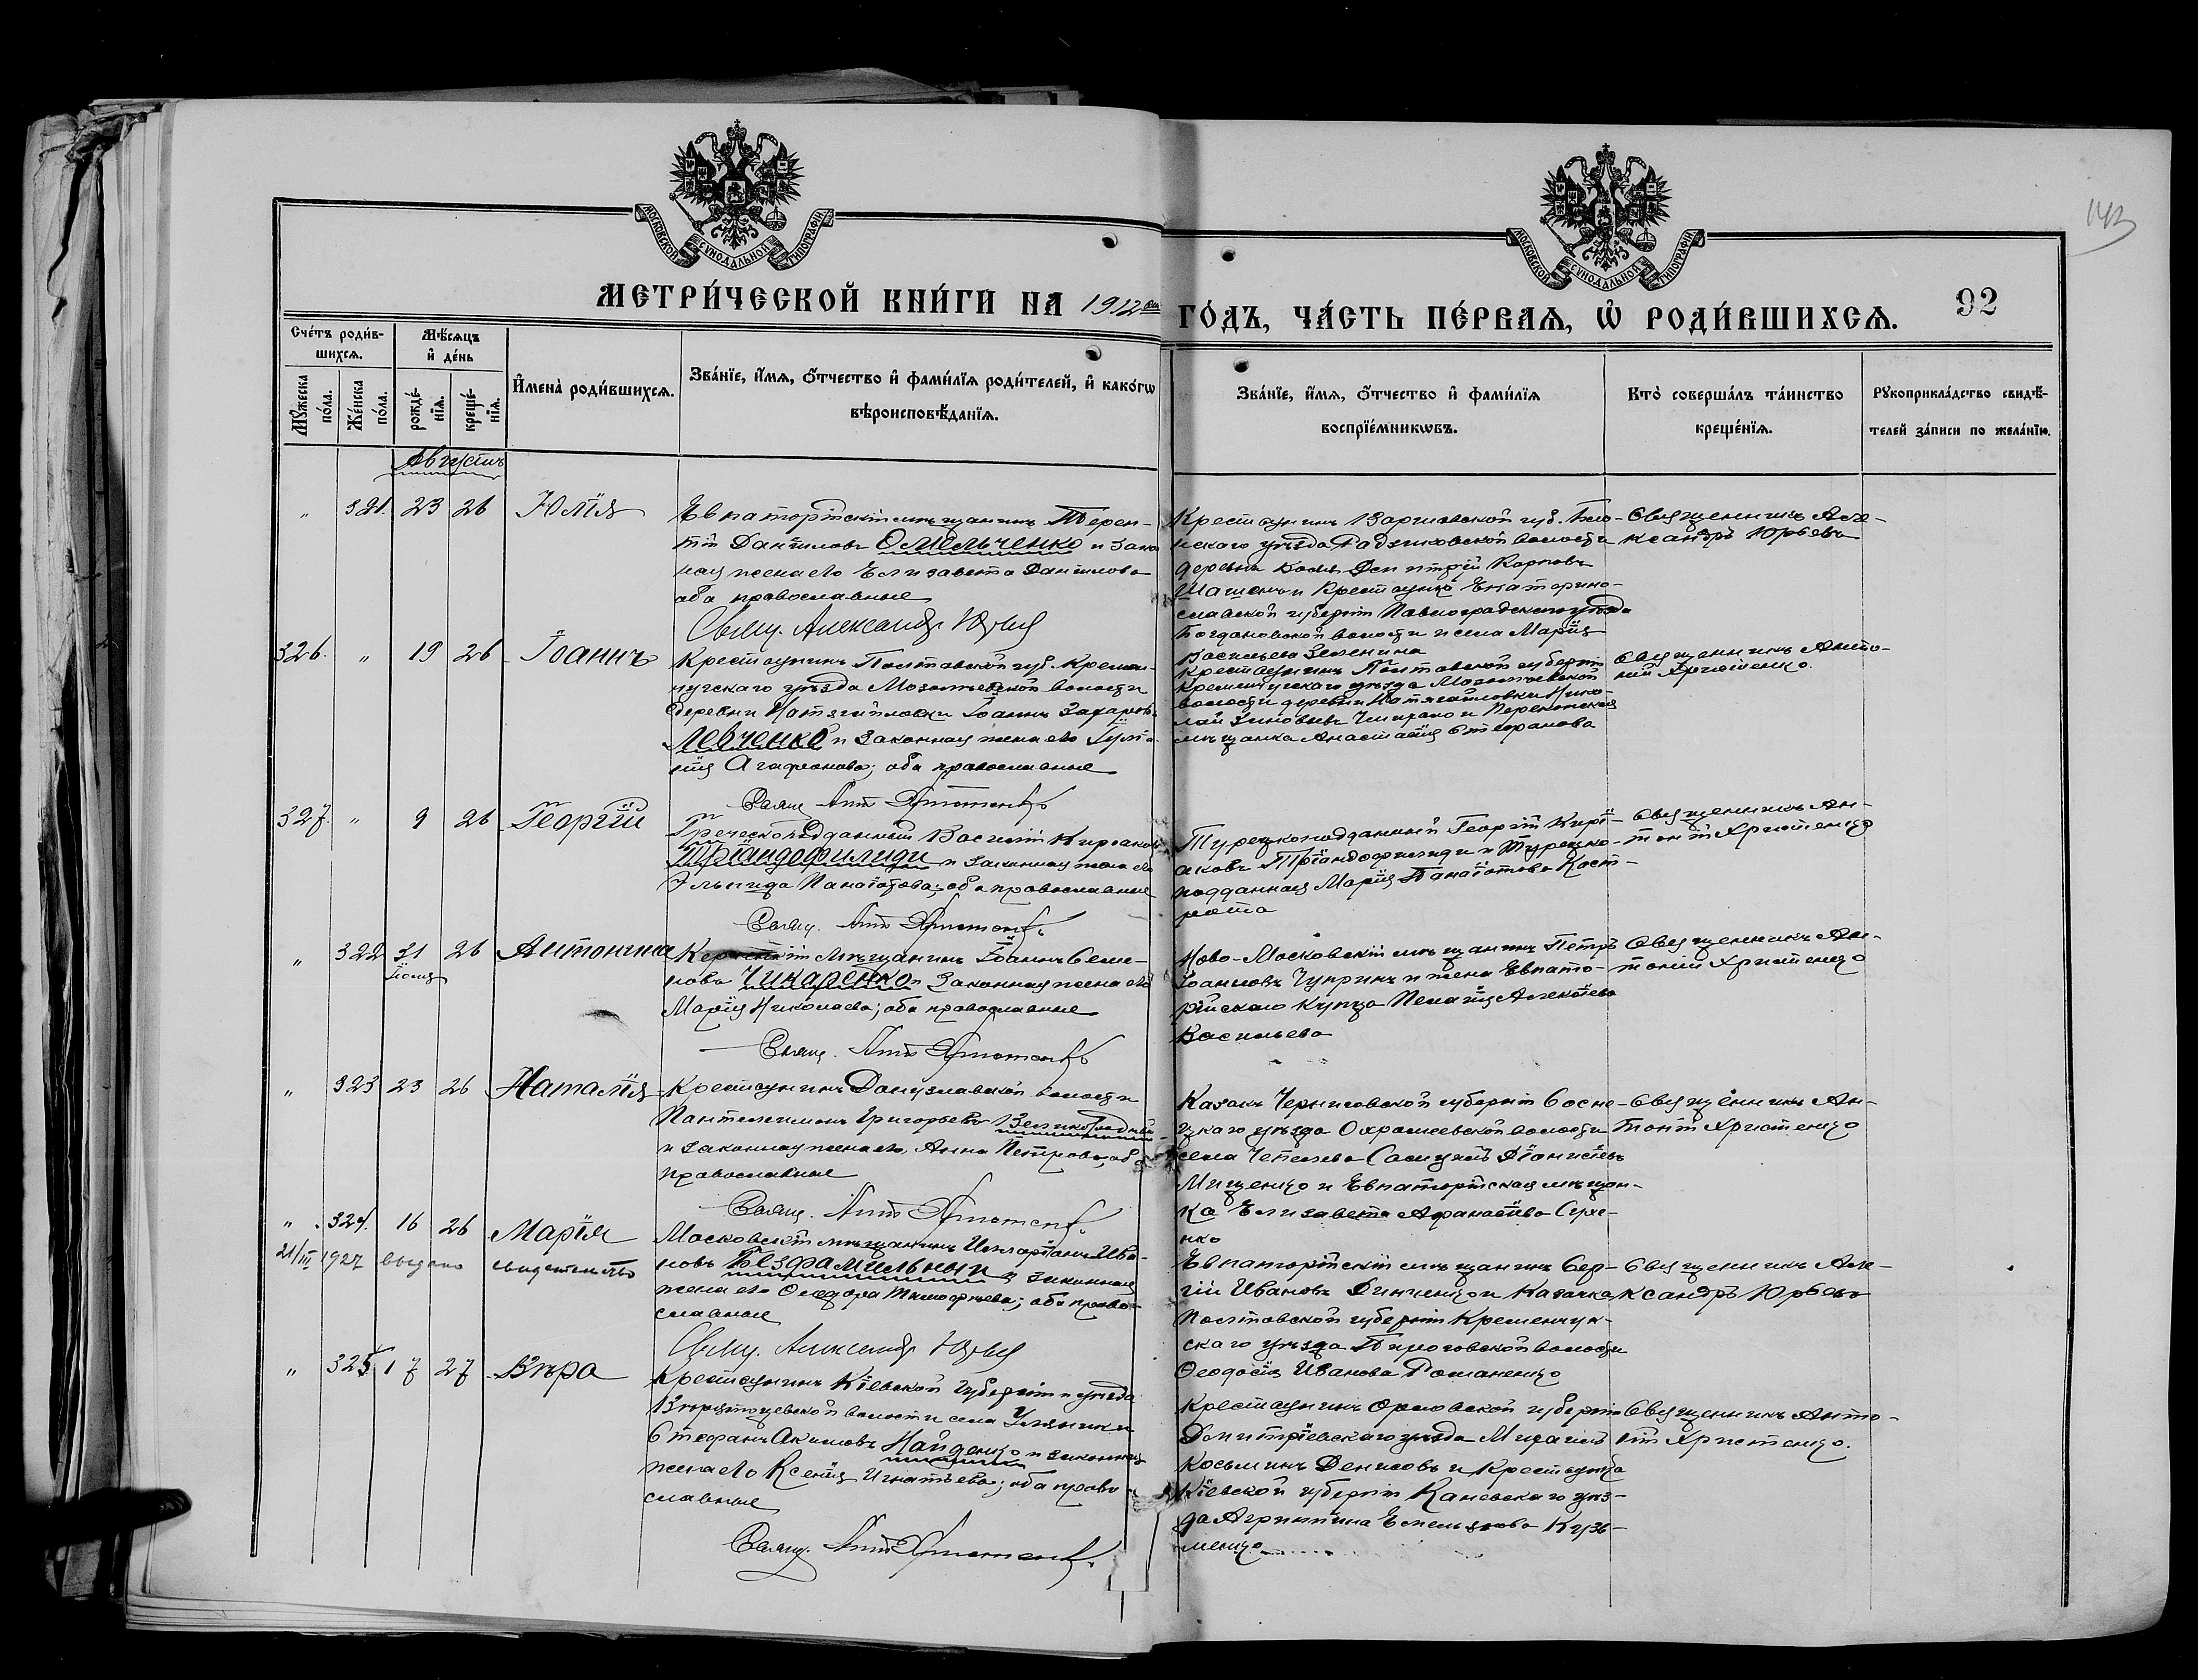 143
МОСКОВСКОЙ СѴНОДАЛЬНОЙ ТИПОГРАФІИ
МОСКОВСКОЙ СѴНОДАЛЬНОЙ ТИПОГРАФІИ
МЕТРИ́ЧЕСКОЙ КНИ́ГИ НА 1912 ый ГО́ДЪ, ЧА́СТЬ ПЕ́РВАЯ, Ѡ РОДИ́ВШИХСЯ.
92
Сче́тъ роди́в-
шихся.
Мꙋ́жеска по́ла.
Же́нска по́ла.
Мѣ́сяцъ и де́нь
рожде́нїя.
креще́нїя.
И҆мена̀ роди́вшихся.
Зва́нїе, и҆́мя, ѻ҆́тчество и҆ фами́лїя роди́телей, и҆ како́гѡ
вѣроисповѣ́данїя.
Зва́нїе, и҆́мя, ѻ҆́тчество и҆ фами́лїя
воспрїе́мникѡвъ.
Кто̀ соверша́лъ та́инство
креще́нїя.
Рꙋкоприкла́дство свидѣ́-
телей за́писи по жела́нїю.
Августъ
" 321. 23 26 Юлія
Евпаторійскій мѣщанинъ Терен-
тій Даніиловъ Омельченко и закон
ная жена его Елизавета Даніилова
оба православные
Свящ. Александръ Юрьевъ
Крестьянинъ Варшавской губ.
нскаго уѣзда Радзиковской волости
деревни Димитрій Карповъ
и крестьянка Екатерино-
славской губерніи Павлоградскаго уѣзда
Богдановской волости и села Марія
Васильева Зеленина
Священникъ Але-
ксандръ Юрьевъ
326. " 19 26 Іоаннъ
Крестьянинъ Полтавской губ. Кремен-
чугскаго уѣзда Мозолѣевской волости
деревни Іоаннъ Захаровъ
Левченко и законная жена его Іулі-
анія Агафонова; оба православные
Свящ. Ант. Христенко
Крестьянинъ Полтавской губерніи
Кременчугскаго уѣзда Мозолѣевской
волости деревни Нико-
лай Зиновьевъ и Перекопская
мѣщанка Анастасія Стефанова
Священникъ Анто-
ній Христенко.
327. " 9 26 Георгій
Греческоподданный Василій Киріаковъ
Тріандафилиди и законная жена его
Эльпида Панаіотова; оба православные
Свящ. Ант. Христенко
Турецкоподданный Георгій Кирі-
аковъ Тріандофилиди и Турецко-
подданная Марія Панаіотова
Священникъ Ан-
тоній Христенко
" 322 31 26 Антонина
Іюля
мѣщанинъ Іоаннъ Семе-
новъ Чинаренко и законная жена его
Марія Николаева; оба православные
Свящ. Ант. Христенко
Ново-Московскій мѣщанинъ Петръ
Іоанновъ Чупринъ и жена Евпато-
рійскаго купца Пелагія Алексѣева
Васильева
Священникъ Ан-
тоній Христенко
" 323 23 26 Наталія
Крестьянинъ Донузлавской волости
Пантелеимонъ Григорьевъ
и законная жена его Анна Петрова; оба
православные
Свящ. Ант. Христенко
Казакъ Черниговской губерніи Сосни-
цкаго уѣзда Охрамеевской волости
села Діонисіевъ
Мищенко и Евпаторійская мѣщан-
ка Елизавета Афанасіева
нко
Священникъ Ан-
тоній Христенко
" 324. 16 26 Марія
21/III 1927 выдано свидетельство
Московскій мѣщанинъ Иларіонъ Ива-
новъ Безфамильный и законная
жена его Ѳеодора Тимофеева; оба право-
славные
Свящ. Александръ Юрьевъ
Евпаторійскій мѣщанинъ Сер-
гій Ивановъ Динченко и казачка
Полтавской губерніи Кременчуг-
скаго уѣзда Пироговской волости
Ѳеодосія Иванова Романенко
Священникъ Але-
ксандръ Юрьевъ
" 325 17 27 Вѣра
Крестьянинъ Кіевской губерніи и уѣзда
волости села
Стефанъ Акимовъ Найденко и законная
жена его Ксенія Игнатьева; оба право-
славные
Свящ. Ант. Христенко
Крестьянинъ Орловской губерніи
Димитріевскаго уѣзда Михаилъ
Косьминъ Денисовъ и крестьянка
Кіевской губерніи Каневскаго уѣз-
да Агриппина Емельянова Кузь-
менко
Священникъ Анто-
ній Христенко.